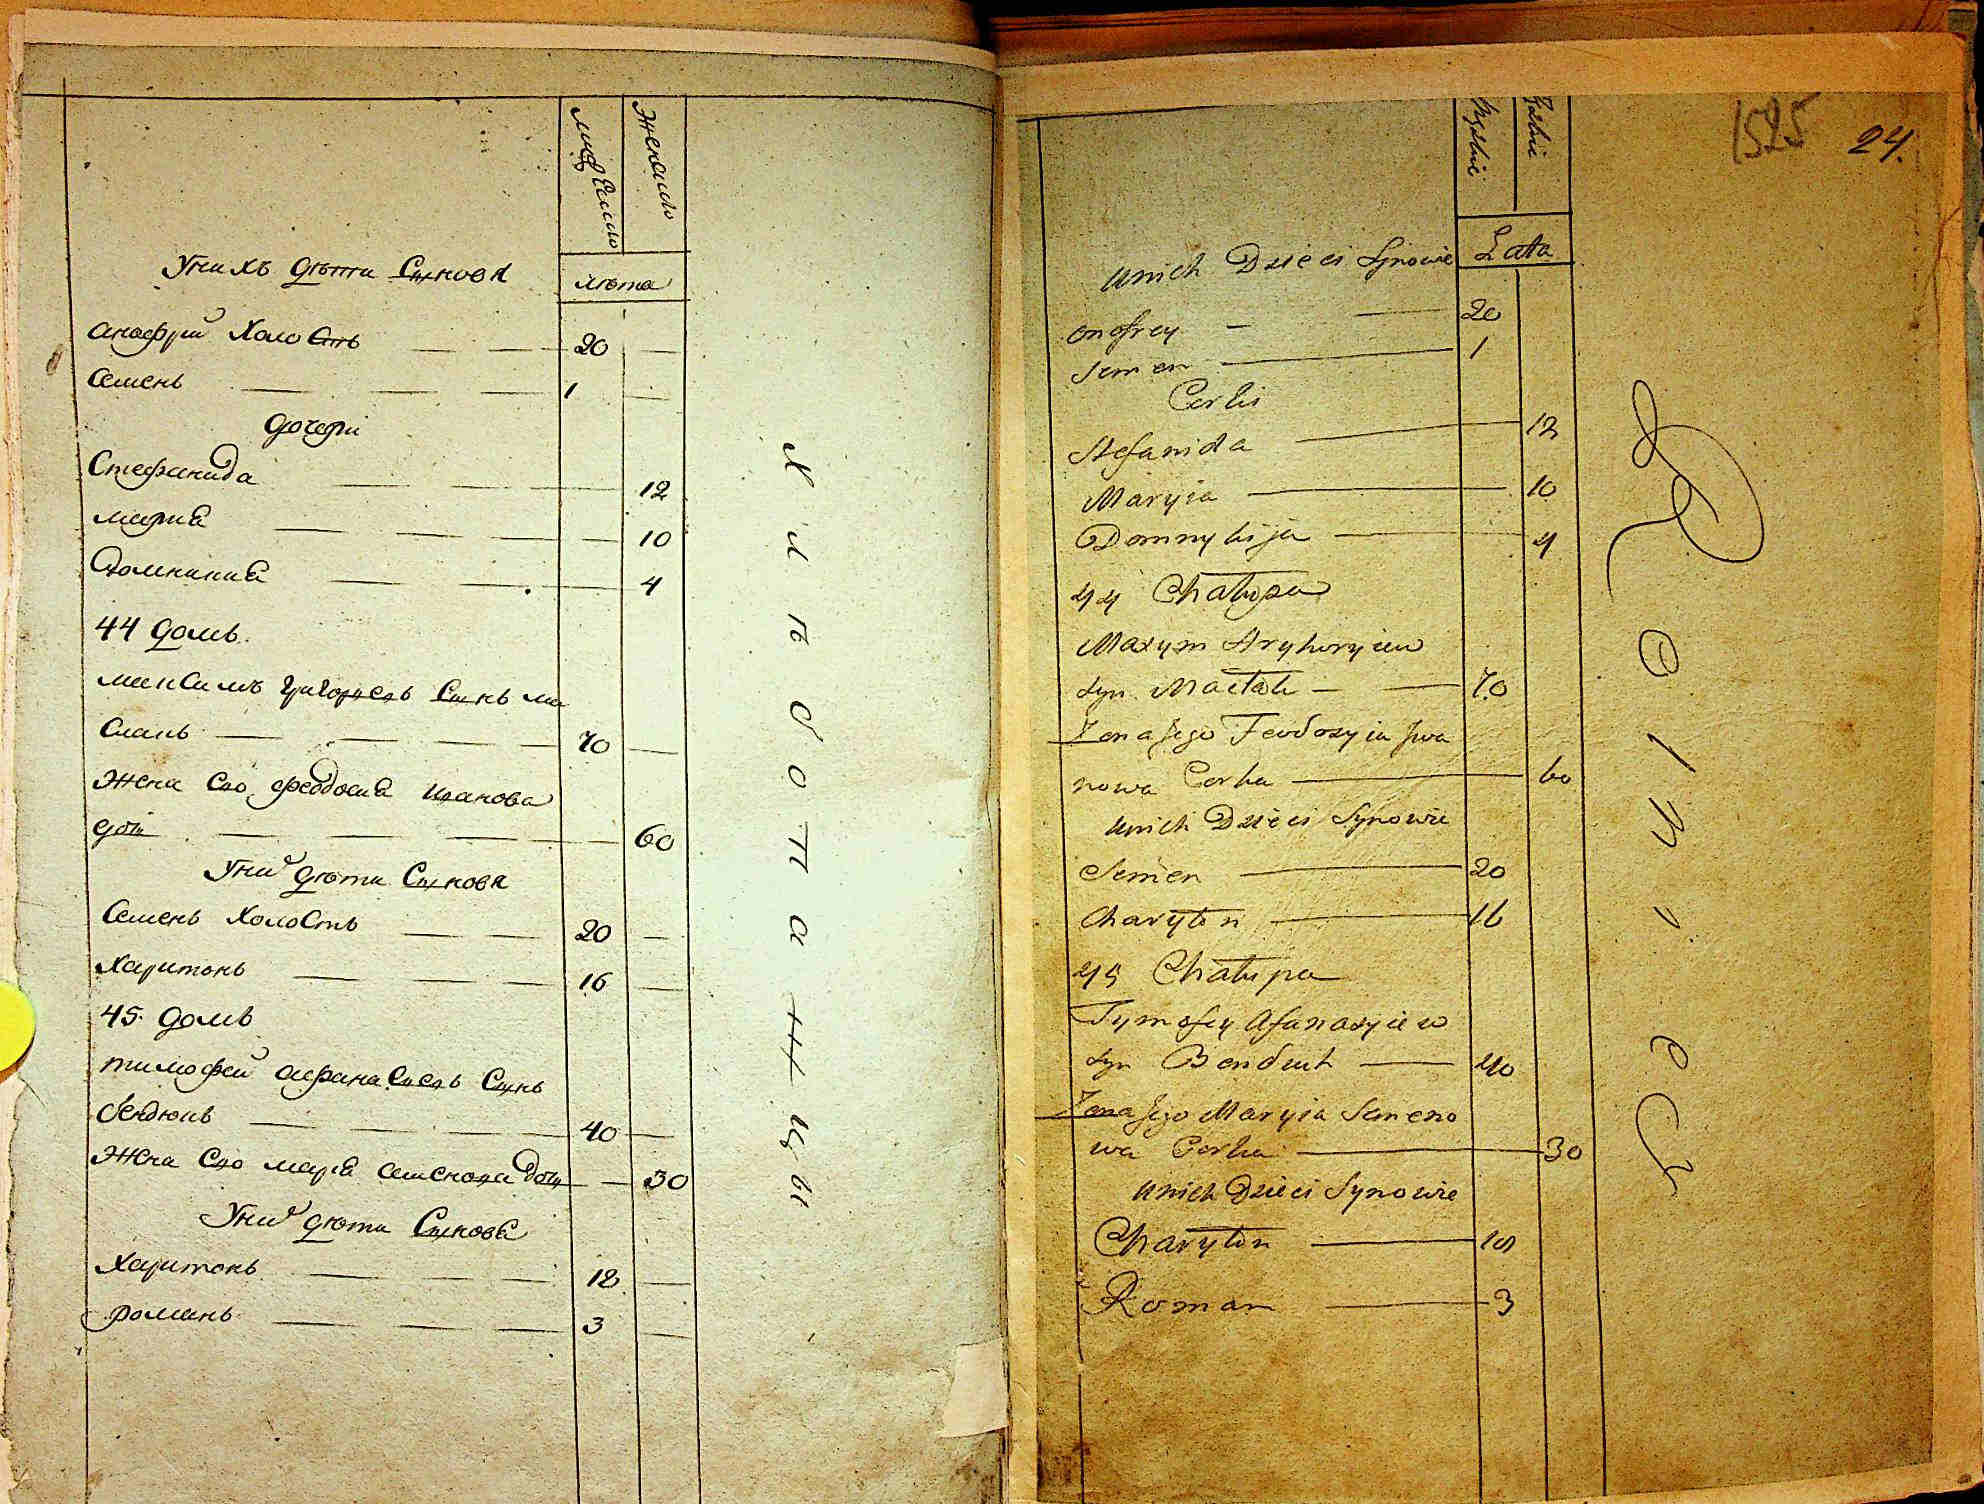 Мужеско
Женско
Унихъ дѣти Сынови
лѣта
анофрий холостъ 20
Семенъ 1
дочери
Стефанида 12
мария 10
Домникия 4
44 домъ
максимъ григорьевъ Сынъ ма
70
Жена Его феодосия иванова
дочь 60
Уних дѣти Сынови
Семенъ холостъ 20
Харитонъ 16
45 домъ
тимофей афанасьевъ Сынъ
бендюкъ 40
Жена Его мария семенова дочь 30
Уних дѣти Сынови
Харитонъ 18
романъ 3
Хлѣбопашцы
1525
24.
Męzkie
Żeńskie
Lata
unich Dzieci Synowie
onofrey 20
Semen 1
Corki
Stefanida 12
Maryia 10
Domnykija 4
44 Chałupa
Maxym Hryhoryiew
syn 70
Żona Jego Feodozyia Jwa
nowa Corka 60
unich Dzieci Synowie
Semen 20
Charyton 16
45 Chałupa
Tymofey Afanasyiew
syn Bendiuk 40
Żona Jego Maryia Semeno
wa Corka 30
unich Dzieci Synowie
Charyton 18
Roman 3
Rolnicy